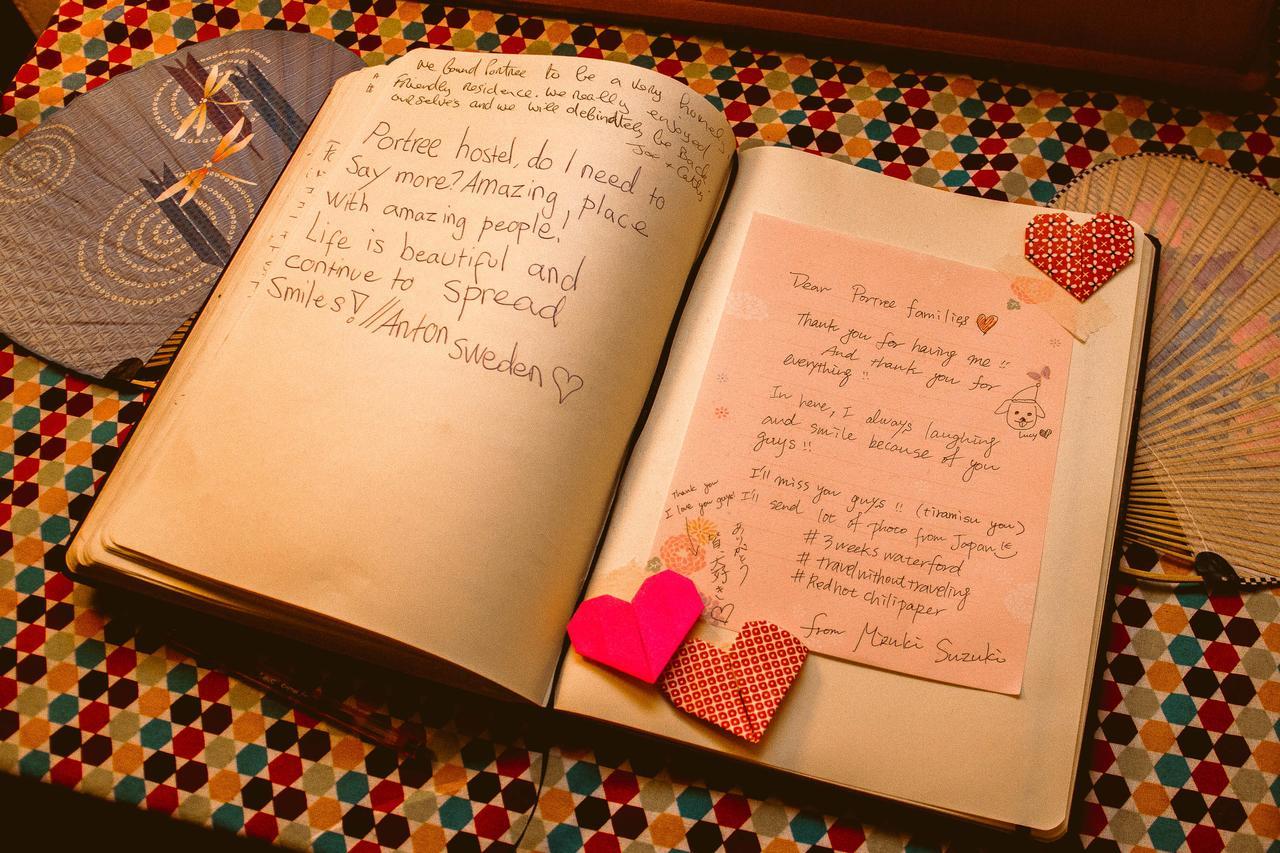 We found Portree to be a very homely
friendly residence. We really enjoyed
ourselves and we will debindtely be Back
Joe + Cathy
Portree hostel, do I need to
Say more? Amazing place
with amazing people!
Life is beautiful and
continue to spread
Smiles! //Anton
Sweden ♡
Dear Portree families
Thank you for having me !!
And thank you for
everything !!
In here, I always laughing
and smile because of you
guys !!
Lucy
I'll miss you guys !! (tiramisu you)
I'll send lot of photo from Japan
# 3weeks waterford
# travelwithout traveling
# Redhot chilipaper
from Mizuki Suzuki
Thank you
I love you guys!
ありがとう
皆、大好き